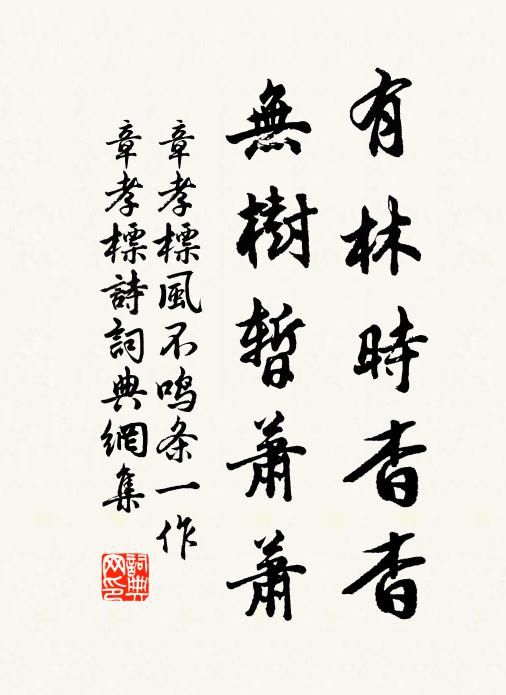 有林時杳杳
無樹暫蕭蕭
章孝標風不鸣条一作
章孝標詩詞典網集
詞典网印